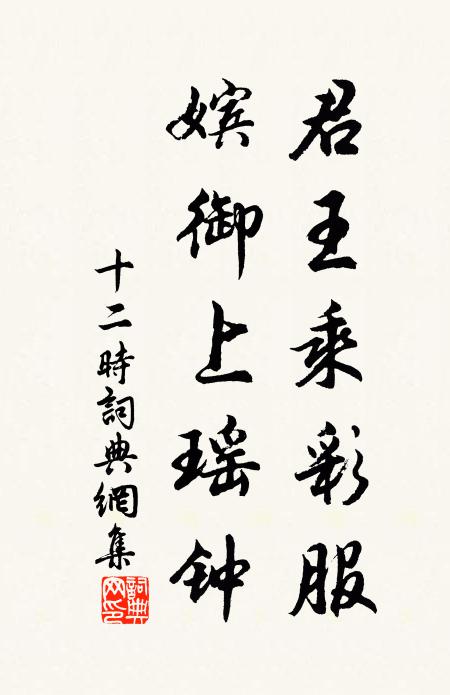 君王乘彩服
嫔御上瑶钟
十二時詞典網集
詞典網印